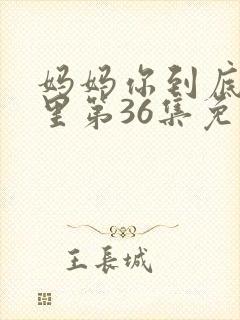 妈妈你到底
里第36集免
王長城